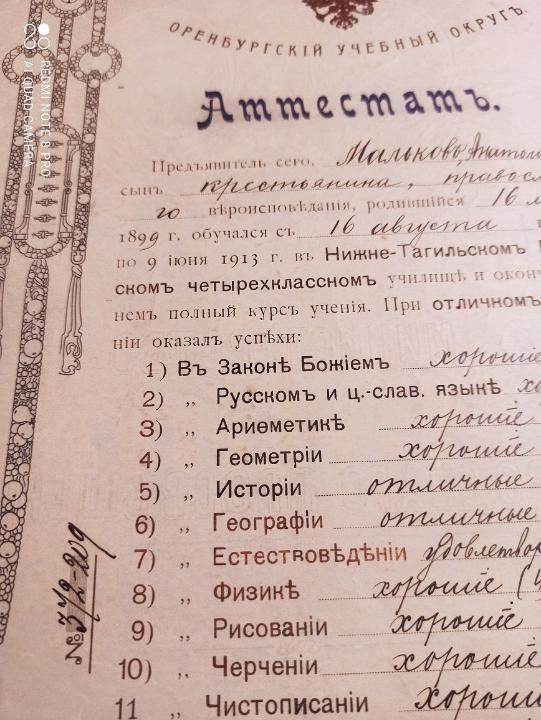 ОРЕНБУРГСКІЙ УЧЕБНЫЙ ОКРУГЪ.
Аттестатъ.
Предъявитель сего, Мальковъ Анатол
сынъ крестьянина, правосл
го вѣроисповѣданія, родившійся 16 м
1899 г. обучался съ 16 августа
по 9 іюня 1913 г. въ Нижне-Тагильскомъ
скомъ четырехклассномъ училищѣ и оконч
немъ полный курсъ ученія. При отличномъ
ніи оказалъ успѣхи:
1) Въ Законѣ Божіемъ хорошіе
2) „ Русскомъ и ц.-слав. языкѣ хо
3) „ Ариѳметикѣ хорошіе
4) „ Геометріи хорошіе
5) „ Исторіи отличные
6) „ Географіи отличные
7) „ Естествовѣдѣніи удовлетвор
8) „ Физикѣ хорошіе (4
9) „ Рисованіи хорошіе
10) „ Черченіи хорошіе
11 „ Чистописаніи хорош
№ 372-209
REDMI NOTE 8 PRO
AI QUAD CAMERA